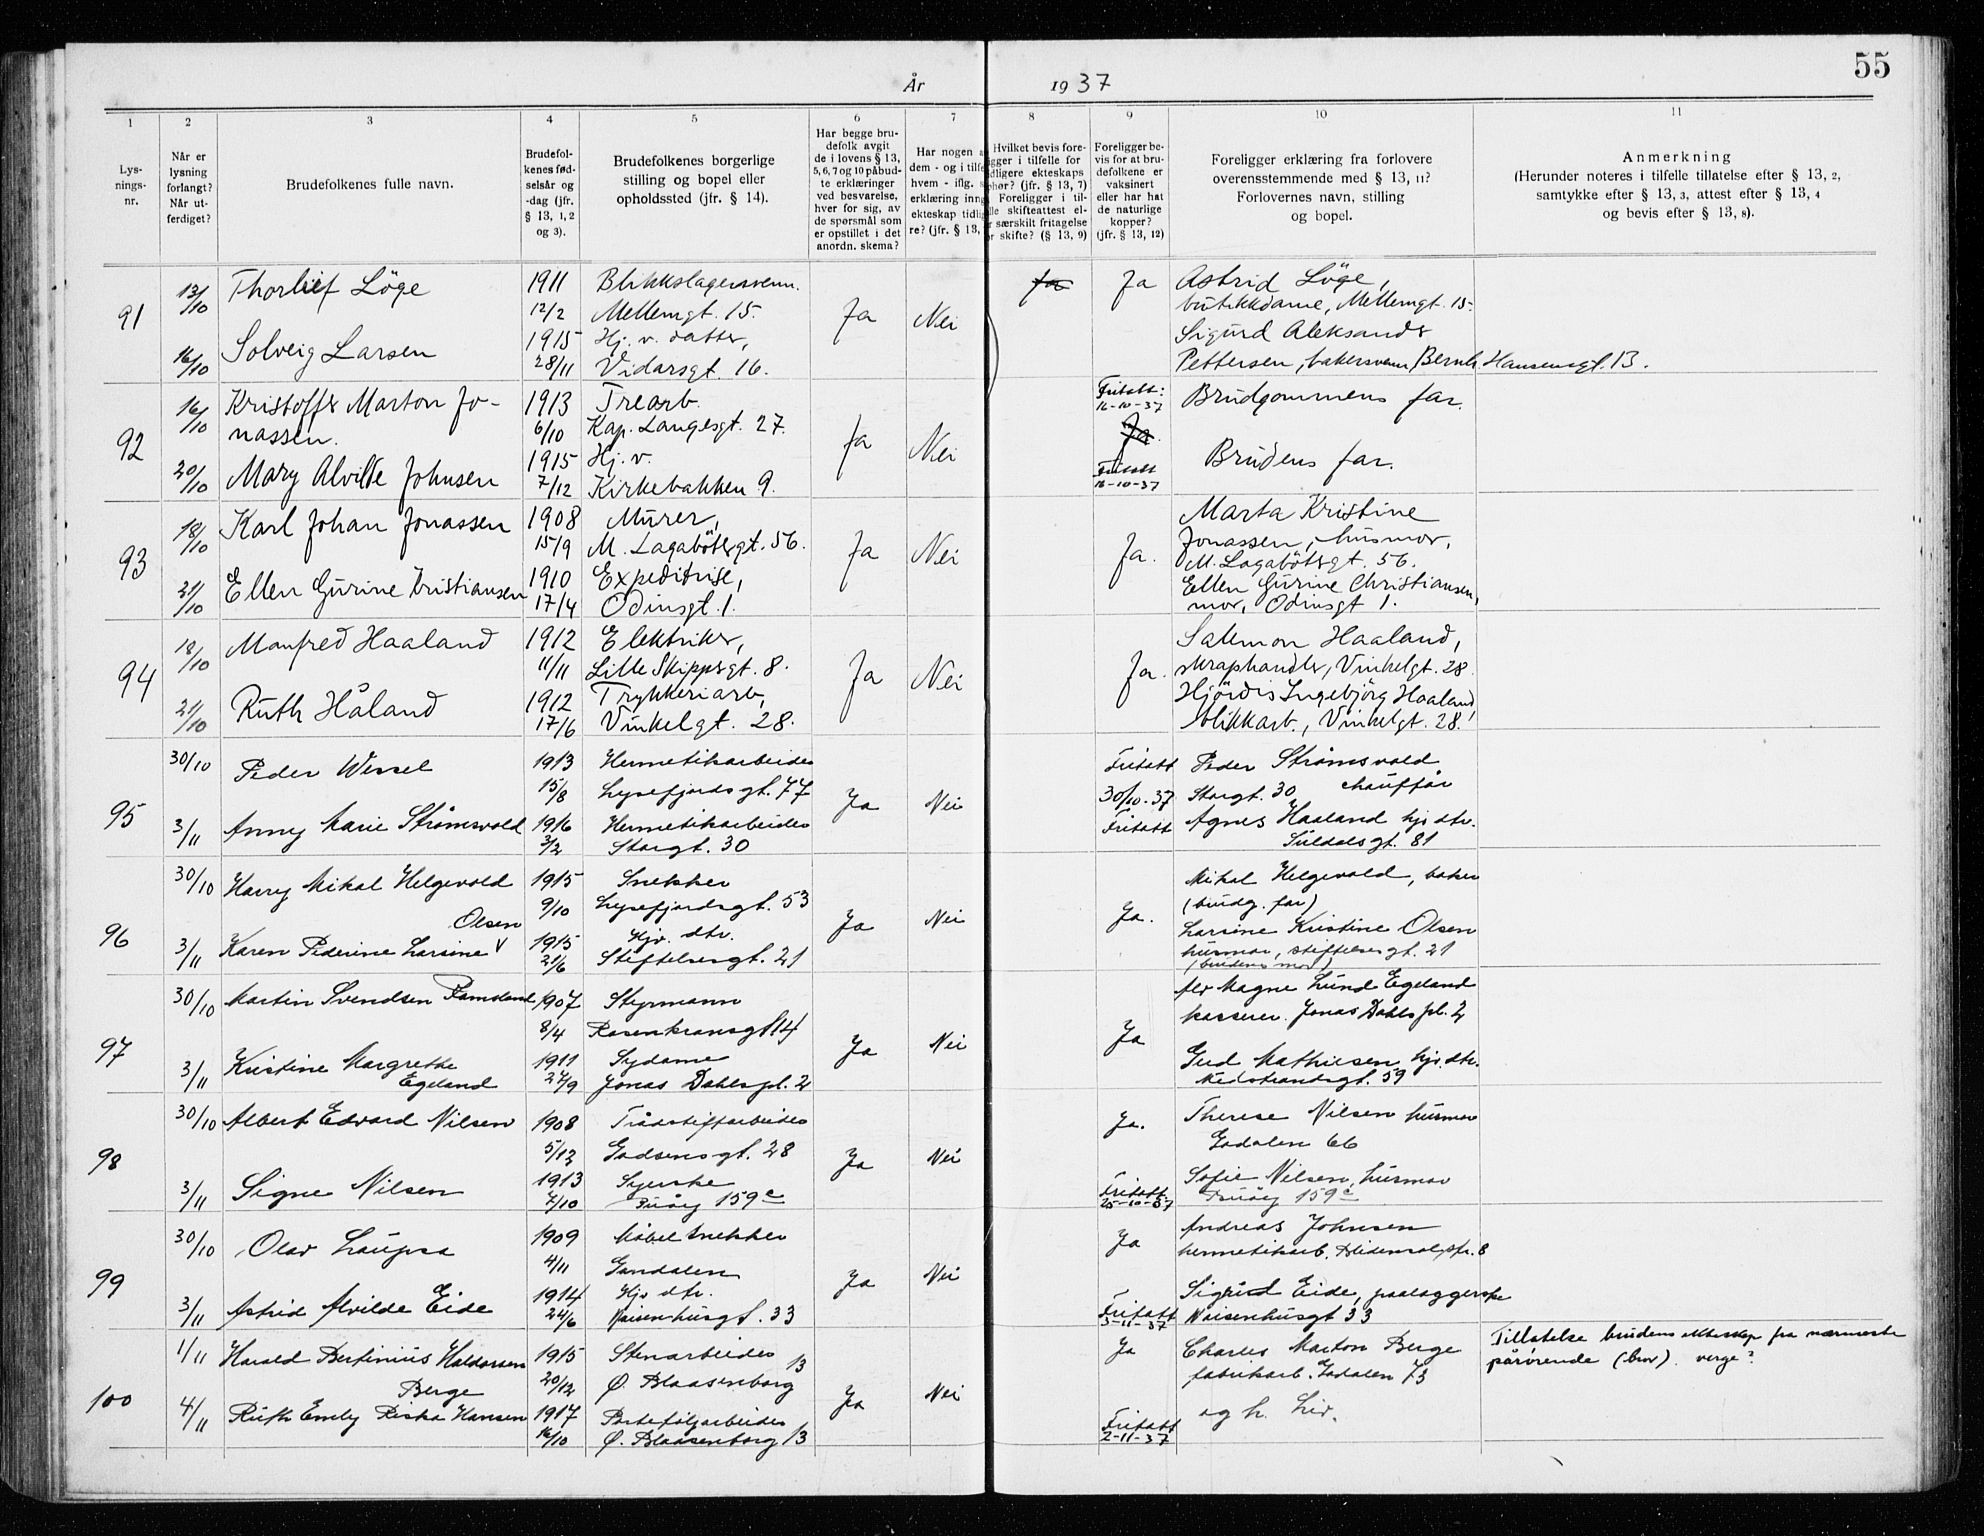 55
År 1937
1 2 3 4 5 6 7 8 9 10 11
Lys-
nings-
nr.
Når er
lysning
forlangt?
Når ut-
ferdiget?
Brudefolkenes fulle navn.
Brudefol-
kenes fød-
selsår og
-dag (jfr.
§ 13, 1, 2
og 3).
Brudefolkenes borgerlige
stilling og bopel eller
opholdssted (jfr. § 14).
Har begge bru-
defolk avgit
de i lovens § 13,
5, 6, 7 og 10 påbud-
te erklæringer
ved besvarelse,
hver for sig, av
de spørsmål som
er opstillet i det
anordn. skema?
Har nogen a
dem - og i tilfe
hvem - iflg. s
erklæring inng
ekteskap tidlig
re? (jfr. § 13,
Hvilket bevis fore-
igger i tilfelle for
dligere ekteskaps
phør? (jfr. § 13, 7)
Foreligger i til-
lle skifteattest el-
r særskilt fritagelse
or skifte? (§ 13, 9)
Foreligger be-
vis for at bru-
defolkene er
vaksinert
eller har hat
de naturlige
kopper?
(jfr. § 13, 12)
Foreligger erklæring fra forlovere
overensstemmende med § 13, 11?
Forlovernes navn, stilling
og bopel.
Anmerkning
(Herunder noteres i tilfelle tillatelse efter § 13, 2,
samtykke efter § 13, 3, attest efter § 13, 4
og bevis efter § 13, 8).
91
13/10 Thorlief Löge 1911 Blikkslagersvenn. Ja Ja Astrid Löge,
12/2 Mellemgt. 15. Ja Nei butikkdame, Mellemgt. 15.
16/10 Solveig Larsen 1915 Hj. v. datter, Sigurd Aleksander
28/11 Vidarsgt. 16. Pettersen, bakersvenn, Bernh. Hansensgt. 13.
92
16/10 Kristoffer Marton Jo- 1913 Trearb. Fritatt: 16-10-37 Brudgommens far.
nassen. 6/10 Kap. Langesgt. 27. Ja Nei Ja.
20/10 Mary Alvilde Johnsen 1915 Hj. v. Brudens far.
7/12 Kirkebakken 9. Fritatt 16-10-37
93
18/10 Karl Johan Jonassen 1908 Murer, Marta Kristine
15/9 M. Lagabötersgt. 56. Ja Nei Ja. Jonassen, husmor,
M. Lagabötersgt. 56.
21/10 Ellen Gurine Kristiansen 1910 Expeditrise, Ellen Gurine Christiansen,
17/4 Odinsgt. 1. mor, Odinsgt 1.
94
18/10 Manfred Haaland 1912 Elektriker, Salemon Haaland,
11/11 Lille Skippergt. 8. Ja Nei Ja. skraphandler, Vinkelgt. 28.
21/10 Ruth Håland 1912 Trykkeriarb, Hjördis Ingebjörg Haaland
17/6 Vinkelgt. 28. blikkarb., Vinkelgt. 28.
95
30/10 Peder Wessel 1913 Hermetikarbeider Fritatt Peder Strømsvold
15/8 Lysefjordsgt. 77 Ja Nei 30/10-37 Storgt. 30 chauffør
3/11 Anny Marie Strømsvold 1916 Hermetikarbeider Fritatt Agnes Haaland hjv dtr.
3/2 Storgt. 30 Suldalsgt. 81
96
30/10 Harry Mikal Helgevold 1915 Snekker Mikal Helgevold, baker
9/10 Lysefjordsgt. 53 Ja Nei Ja. (brudg. far)
Olsen
3/11 Karen Pederine Larsine V 1915 Hjv. dtr. Larsine Kristine Olsen
21/6 Stiftelsesgt. 21 husmor, stiftelsesgt. 21
(brudens mor)
97
30/10 Martin Svendsen Ramsland 1907 Styrmann Alv Magne Lund Egeland
8/4 Rosenkransgt 14 Ja Nei Ja kasserer. Jonas Dahls pl. 2
3/11 Kristine Margrethe 1911 Sydame Gud Mathiesen, hjv. dtr.
Egeland 24/9 Jonas Dahls pl. 2 Nedstrandsgt. 59
98
30/10 Albert Edvard Nilsen 1908 Trådstiftarbeider Ja. Therese Nilsen husmor
5/12 Godsensgt. 28 Ja Nei Godalen 66
3/11 Signe Nilsen 1913 Syerske Fritatt Sofie Nilsen, husmor
4/10 Buøy 159c 25-10-37 Buøy 159c
99
30/10 Olav Laupsa 1909 Møbelsnekker Ja Andreas Johnsen
4/11 Gandalen Ja Nei hermetikarb.
3/11 Astrid Alvilde Eide 1914 Hjv dtr. Sigurd Eide, paaleggerske
24/6 Vaisenhusgt. 33 Fritatt 3-11-37 Vaisenhusgt 33
100
1/11 Harald Bertinius Haldorsen 1915 Stenarbeider Ja Charles Marton Berge Tillatelse brudens ekteskap fra nærmeste
Berge 20/12 Ø. Blaasenborg 13 Ja Nei fabrikarb. Godalen 73 pårørende (bror). verge?
4/11 Ruth Emely Riska Hansen 1917 Porteføljarbeider Fritatt og h. Liv.
16/10 Ø. Blaasenborg 13 2-11-37